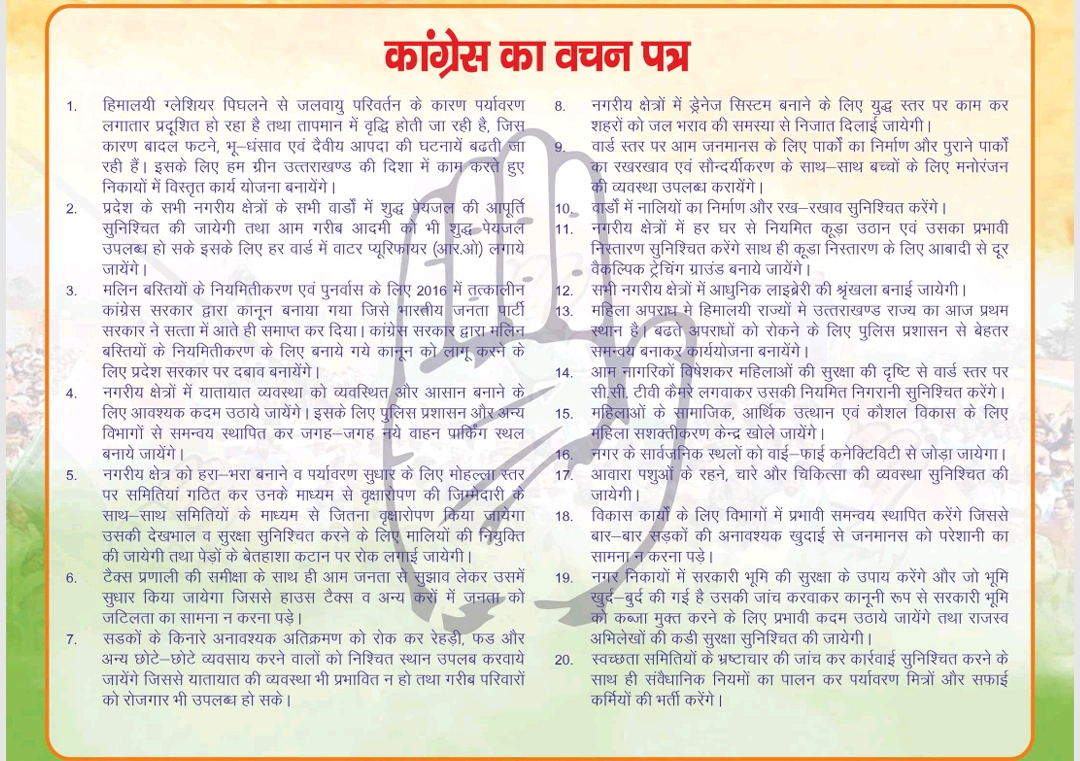 कांग्रेस का वचन पत्र
1. हिमालयी ग्लेशियर पिघलने से जलवायु परिवर्तन के कारण पर्यावरण
लगातार प्रदूशित हो रहा है तथा तापमान में वृद्धि होती जा रही है, जिस
कारण बादल फटने, भू–धंसाव एवं दैवीय आपदा की घटनायें बढती जा
रही हैं। इसके लिए हम ग्रीन उत्तराखण्ड की दिशा में काम करते हुए
निकायों में विस्तृत कार्य योजना बनायेंगे।
2. प्रदेश के सभी नगरीय क्षेत्रों के सभी वार्डों में शुद्ध पेयजल की आपूर्ति
सुनिश्चित की जायेगी तथा आम गरीब आदमी को भी शुद्ध पेयजल
उपलब्ध हो सके इसके लिए हर वार्ड में वाटर प्यूरिफायर (आर.ओ) लगाये
जायेंगे।
3. मलिन बस्तियों के नियमितीकरण एवं पुनर्वास के लिए 2016 में तत्कालीन
कांग्रेस सरकार द्वारा कानून बनाया गया जिसे भारतीय जनता पार्टी
सरकार ने सत्ता में आते ही समाप्त कर दिया। कांग्रेस सरकार द्वारा मलिन
बस्तियों के नियमितीकरण के लिए बनाये गये कानून को लागू करने के
लिए प्रदेश सरकार पर दबाव बनायेंगे।
4. नगरीय क्षेत्रों में यातायात व्यवस्था को व्यवस्थित और आसान बनाने के
लिए आवश्यक कदम उठाये जायेंगे। इसके लिए पुलिस प्रशासन और अन्य
विभागों से समन्वय स्थापित कर जगह–जगह नये वाहन पार्किंग स्थल
बनाये जायेंगे।
5. नगरीय क्षेत्र को हरा–भरा बनाने व पर्यावरण सुधार के लिए मोहल्ला स्तर
पर समितियां गठित कर उनके माध्यम से वृक्षारोपण की जिम्मेदारी के
साथ–साथ समितियों के माध्यम से जितना वृक्षारोपण किया जायेगा
उसकी देखभाल व सुरक्षा सुनिश्चित करने के लिए मालियों की नियुक्ति
की जायेगी तथा पेड़ों के बेतहाशा कटान पर रोक लगाई जायेगी।
6. टैक्स प्रणाली की समीक्षा के साथ ही आम जनता से सुझाव लेकर उसमें
सुधार किया जायेगा जिससे हाउस टैक्स व अन्य करों में जनता को
जटिलता का सामना न करना पड़े।
7. सडकों के किनारे अनावश्यक अतिक्रमण को रोक कर रेहड़ी, फड और
अन्य छोटे–छोटे व्यवसाय करने वालों को निश्चित स्थान उपलब करवाये
जायेंगे जिससे यातायात की व्यवस्था भी प्रभावित न हो तथा गरीब परिवारों
को रोजगार भी उपलब्ध हो सके।
8. नगरीय क्षेत्रों में ड्रेनेज सिस्टम बनाने के लिए युद्ध स्तर पर काम कर
शहरों को जल भराव की समस्या से निजात दिलाई जायेगी।
9. वार्ड स्तर पर आम जनमानस के लिए पार्कों का निर्माण और पुराने पार्कों
का रखरखाव एवं सौन्दर्यीकरण के साथ–साथ बच्चों के लिए मनोरंजन
की व्यवस्था उपलब्ध करायेंगे।
10. वार्डों में नालियों का निर्माण और रख–रखाव सुनिश्चित करेंगे।
11. नगरीय क्षेत्रों में हर घर से नियमित कूड़ा उठान एवं उसका प्रभावी
निस्तारण सुनिश्चित करेंगे साथ ही कूडा निस्तारण के लिए आबादी से दूर
वैकल्पिक ट्रेचिंग ग्राउंड बनाये जायेंगे।
12. सभी नगरीय क्षेत्रों में आधुनिक लाइब्रेरी की श्रृंखला बनाई जायेगी।
13. महिला अपराध मे हिमालयी राज्यों मे उत्तराखण्ड राज्य का आज प्रथम
स्थान है। बढते अपराधों को रोकने के लिए पुलिस प्रशासन से बेहतर
समन्वय बनाकर कार्ययोजना बनायेंगे।
14. आम नागरिकों विषेशकर महिलाओं की सुरक्षा की दृष्टि से वार्ड स्तर पर
सी.सी. टीवी कैमरे लगवाकर उसकी नियमित निगरानी सुनिश्चित करेंगे।
15. महिलाओं के सामाजिक, आर्थिक उत्थान एवं कौशल विकास के लिए
महिला सशक्तीकरण केन्द्र खोले जायेंगे।
16. नगर के सार्वजनिक स्थलों को वाई–फाई कनेक्टिविटी से जोड़ा जायेगा।
17. आवारा पशुओं के रहने, चारे और चिकित्सा की व्यवस्था सुनिश्चित की
जायेगी।
18. विकास कार्यों के लिए विभागों में प्रभावी समन्वय स्थापित करेंगे जिससे
बार–बार सड़कों की अनावश्यक खुदाई से जनमानस को परेशानी का
सामना न करना पड़े।
19. नगर निकायों में सरकारी भूमि की सुरक्षा के उपाय करेंगे और जो भूमि
खुर्द–बुर्द की गई है उसकी जांच करवाकर कानूनी रूप से सरकारी भूमि
को कब्जा मुक्त करने के लिए प्रभावी कदम उठाये जायेंगे तथा राजस्व
अभिलेखों की कडी सुरक्षा सुनिश्चित की जायेगी।
20. स्वच्छता समितियों के भ्रष्टाचार की जांच कर कार्रवाई सुनिश्चित करने के
साथ ही संवैधानिक नियमों का पालन कर पर्यावरण मित्रों और सफाई
कर्मियों की भर्ती करेंगे।